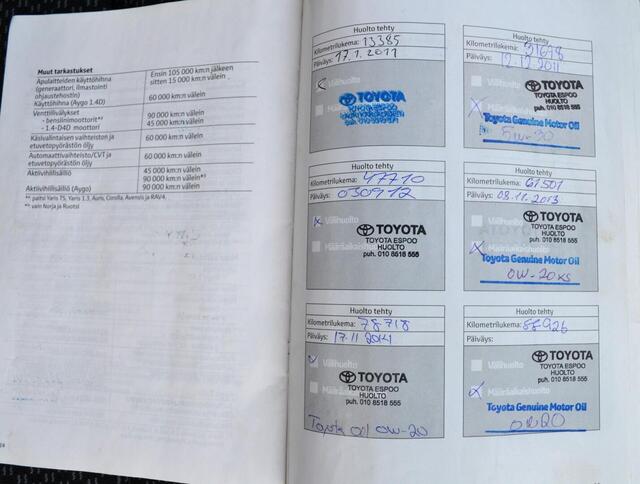 Muut tarkastukset
Apulaitteiden käyttöhihna
(generaattori, ilmastointi
ohjaustehostin)
Ensin 105 000 km:n jälkeen
sitten 15 000 km:n välein
Käyttöhihna (Aygo 1.4D)
60 000 km:n välein
Venttiilivälykset
- bensiinimoottorit*¹
90 000 km:n välein
- 1.4-D4D moottori
45 000 km:n välein
Käsivalintaisen vaihteiston ja
etuvetopyörästön öljy
60 000 km:n välein
Automaattivaihteisto/CVT ja
etuvetopyörästön öljy
60 000 km:n välein
Aktiivihiilisäiliö
45 000 km:n välein
90 000 km:n välein*²
Aktiivihiilisäiliö (Aygo)
90 000 km:n välein
*¹: paitsi Yaris TS, Yaris 1.3, Auris, Corolla, Avensis ja RAV4.
*²: vain Norja ja Ruotsi
Huolto tehty
Kilometrilukema: 13385
Päiväys: 17.1.2011
Välihuolto
TOYOTA
Huolto tehty
Kilometrilukema: 31678
Päiväys: 12.12.2011
TOYOTA
TOYOTA ESPOO
HUOLTO
puh. 010 8518 555
Toyota Genuine Motor Oil
5w-30
Huolto tehty
Kilometrilukema: 47710
Päiväys: 030912
Välihuolto
Määräaikaishuolto
TOYOTA
TOYOTA ESPOO
HUOLTO
puh. 010 8518 555
Huolto tehty
Kilometrilukema: 61501
Päiväys: 08.11.2013
Välihuolto
Määräaikaishuolto
TOYOTA
TOYOTA ESPOO
HUOLTO
puh. 010 8518 555
Toyota Genuine Motor Oil
0W-20
Huolto tehty
Kilometrilukema: 78718
Päiväys: 17.11.2014
Välihuolto
Määräaikaishuolto
TOYOTA
TOYOTA ESPOO
HUOLTO
puh. 010 8518 555
Toyota oil 0W-20
Huolto tehty
Kilometrilukema: 88926
Päiväys:
Välihuolto
Määräaikaishuolto
TOYOTA
TOYOTA ESPOO
HUOLTO
puh. 010 8518 555
Toyota Genuine Motor Oil